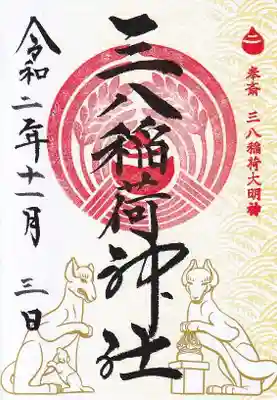 奉斎 三八稲荷大明神
三八稲荷神社
令和二年十一月三日